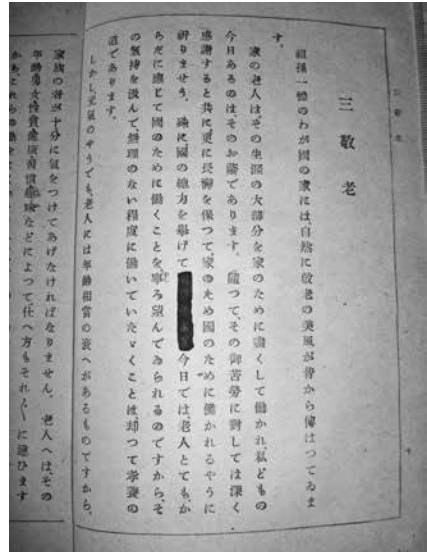 三敬老
三 敬 老
祖孫一體のわが國の家には、自然に敬老の美風が昔から傳はつてゐま
す。
家の老人はその生涯の大部分を家のために盡くして働かれ、私どもの
今日あるのはそのお蔭であります。隨つて、その御苦勞に對しては深く
感謝すると共に、更に長壽を保つて家のため國のために働かれるやうに
祈りませう。殊に國の總力を擧げて
今日では、老人とても、か
らだに應じて國のために働くことを寧ろ望んでゐられるのですから、そ
の氣持を汲んで、無理のない程度に働いていたゞくことは却つて孝養の
道であります。
しかし元氣のやうでも、老人には年齡相當の衰へがあるものですから、
家族の者が十分に氣をつけてあげなければなりません。老人へは、その
年齡・女性・
などによつて仕へ方もそれ〴〵に違ひます